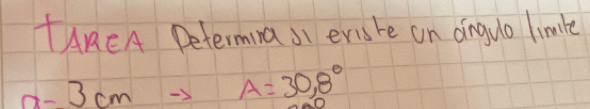 TAREA Determina si existe un ángulo límite
a= 3 cm → A= 30,8°